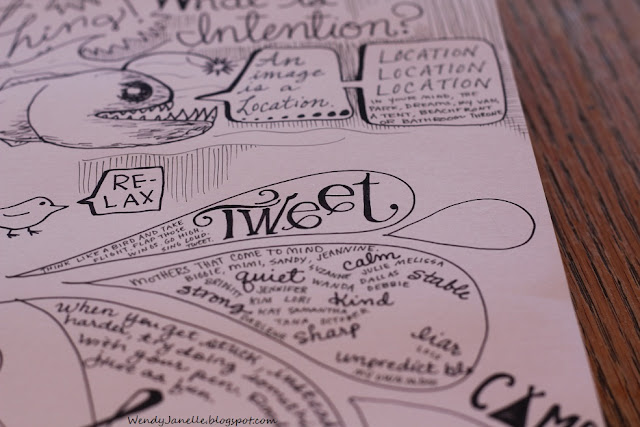 What is
Intention?
thing!
An
image
is a
Location.
LOCATION
LOCATION
LOCATION
IN YOUR MIND, THE
PARK, DREAMS, MY VAN,
A TENT, BEACHFRONT
OR BATHROOM THRONE
RE-
LAX
TWeet
THINK LIKE A BIRD AND TAKE
FLIGHT. FLAP THOSE
WINGS. GO HIGH.
SING LOUD.
TWEET.
MOTHERS THAT COME TO MIND.
BIGGIE, MIMI, SANDY, JEANNINE.
calm
quiet SUZANNE JULIE MELISSA
BRINDY JENNIFER WANDA DALLAS stable
strong KIM LORI kind DEBBIE
KAY SAMANTHA
DARLENE TANA OCTOBER
sharp
liar
LOLO
unpredictable
When you get stuck, instead
harder, try doing
with your pen.
just as fun.
CAMP
WendyJanelle.blogspot.com